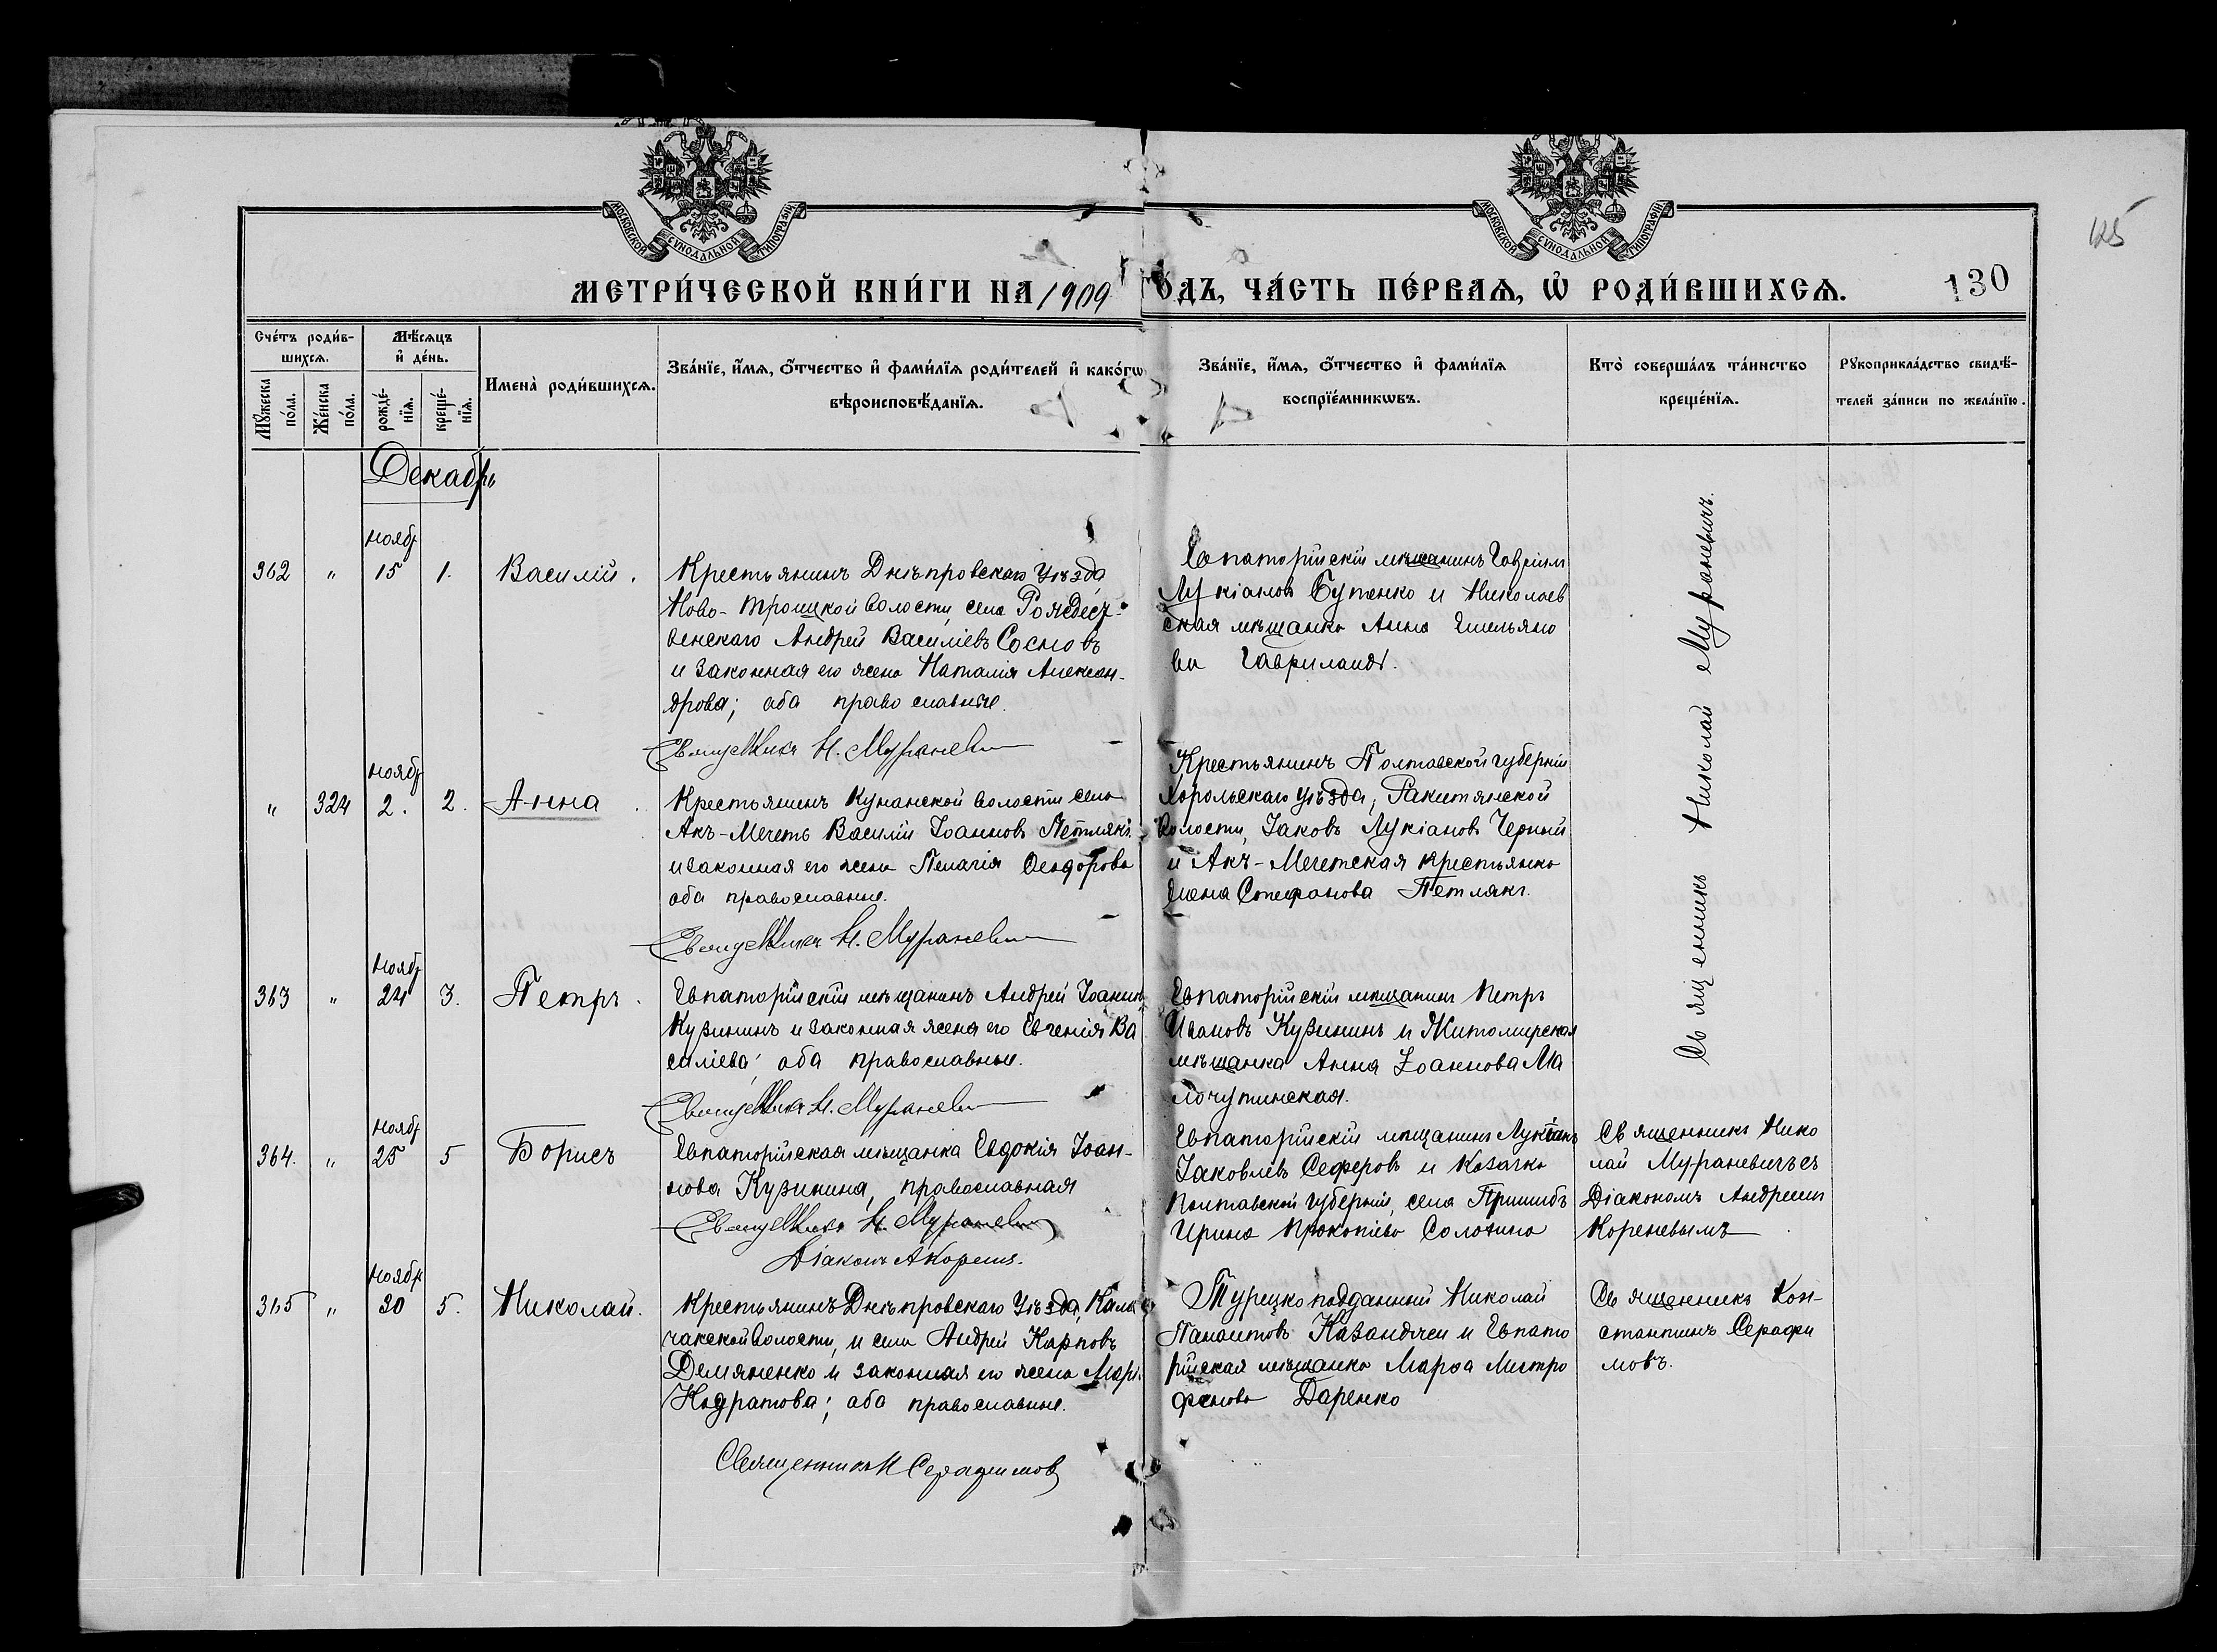 МОСКОВСКОЙ СУНОДАЛЬНОЙ ТИПОГРАФІИ
МОСКОВСКОЙ СУНОДАЛЬНОЙ ТИПОГРАФІИ
125
МЕТРИ́ЧЕСКОЙ КНИ́ГИ НА 1909 ГО́ДЪ, ЧА́СТЬ ПЕ́РВАѦ, Ѡ҆ РОДИ́ВШИХСѦ.
130
Сче́тъ роди́в-
шихсѧ.
Мꙋ́жеска по́ла.
Же́нска по́ла.
Мѣ́сѧцъ
и҆ де́нь.
рожде́-
нїѧ.
креще́-
нїѧ.
Имена̀ роди́вшихсѧ.
Зва́нїе, и҆́мѧ, ѻ҆́тчество и҆ фами́лїѧ роди́телей и҆ како́гѡ
вѣроисповѣ́данїѧ.
Зва́нїе, и҆́мѧ, ѻ҆́тчество и҆ фами́лїѧ
воспрїе́мникѡвъ.
Кто̀ соверша́лъ та́инство
креще́нїѧ.
Рꙋкоприкла́дство свидѣ́-
телей за́писи по жела́нїю.
Декабрь
362 " ноябр 15 1. Василій.
Крестьянинъ Днѣпровскаго уѣзда
Ново-Троицкой волости, села Рождест-
венскаго Андрей Василіевъ Сосновъ
и законная его жена Наталія Алексан-
дрова; оба православные.
Священникъ Н. Мураневич
Евпаторійскій мѣщанинъ Гавріилъ
Лукіановъ Бутенко и Николаев
ская мѣщанка Анна Емельяно
ва
Священникъ Николай Мураневичъ.
" 324 ноябр 2. 2. Анна
Крестьянинъ Кунанской волости села
Акъ-Мечеть Василій Іоанновъ Петлякъ
и законная его жена Пелагія Ѳеодорова
оба православные.
Священникъ Н. Мураневич
Крестьянинъ Полтавской губерніи
Хорольскаго уѣзда, Ракитянской
волости, Іаковъ Лукіановъ Черный
и Акъ-Мечетская крестьянка
Елена Стефанова Петлякъ.
363 " ноябр 24 3. Петръ.
Евпаторійскій мѣщанинъ Андрей Іоаннъ
Кузининъ и законная жена его Евгенія Ва
силіева; оба православные.
Священникъ Н. Мураневич
Евпаторійскій мѣщанинъ Петръ
Ивановъ Кузининъ и Житомирская
мѣщанка Анна Іоаннова Ма
364. " ноябр 25 5 Борисъ
Евпаторійская мѣщанка Евдокія Іоан-
нова Кузинина, православная
Священникъ Н. Мураневич
Діаконъ А Корень.
Евпаторійскій мѣщанинъ Лукіанъ
Іаковлевъ Сеферовъ и Козачка
Полтавской губерніи, села Пришибъ
Ирина Прокопіева Солонина
Священникъ Нико
лай Мураневичъ съ
Діакономъ Андреемъ
Кореневымъ
365 " ноябр 30 5. Николай.
Крестьянинъ Днѣпровскаго уѣзда, Кала
чакской волости, и села Андрей Карповъ
Демяненко и законная его жена Марі
Кодратова; оба православные.
Священникъ К Серафимов
Турецко подданный Николай
Панаитовъ Казанджи и Евпато
рійская мѣщанка Марѳа Митро
фанова Даренко
Священникъ Кон-
стантинъ Серафи
мовъ.